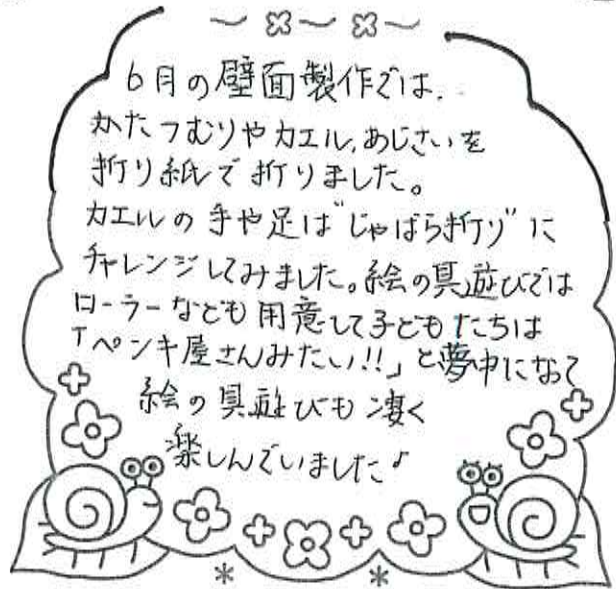 6月の壁面製作では、
かたつむりやカエル、あじさいを
折り紙で折りました。
カエルの手や足は"じゃばら折り"に
チャレンジしてみました。絵の具遊びでは
ローラーなども用意して子どもたちは
「ペンキ屋さんみたい!!」と夢中になって
絵の具遊びも凄く
楽しんでいました♪